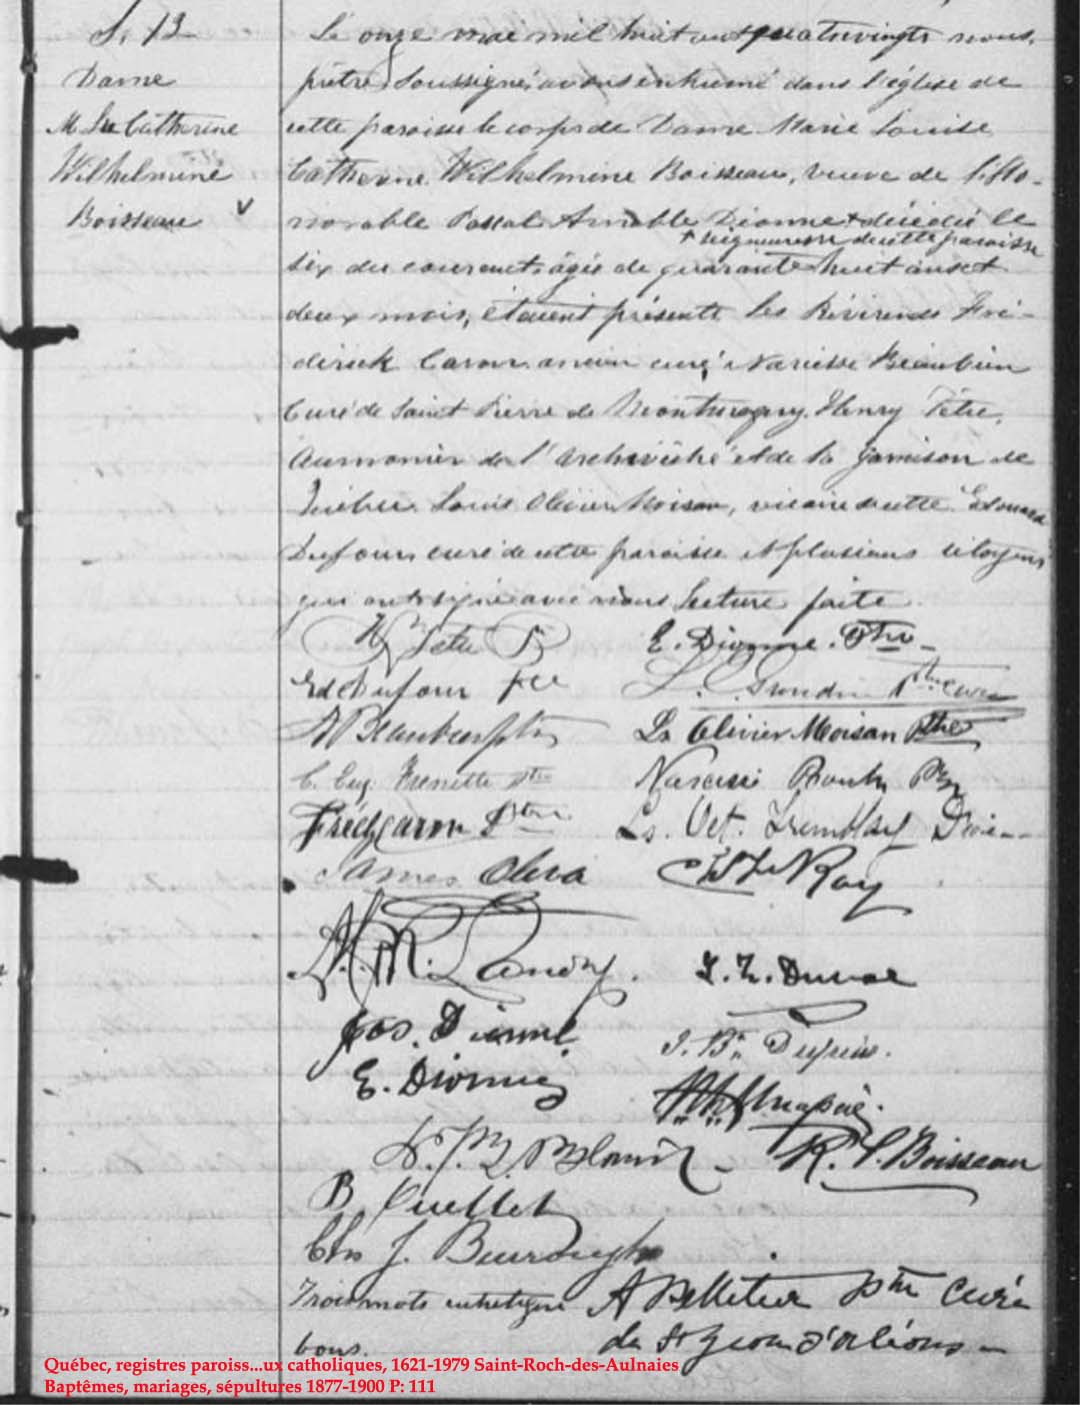 S. 13
Dame
M. Lse Catherine
Wilhelmine
Boisseau
Le onze mai mil huit cent quatrevingts nous,
prêtre soussigné, avons inhumé dans l'église de
cette paroisse le corps de Dame Marie Louise
Catherine Wilhelmine Boisseau, veuve de l'Ho-
norable Pascal Amable Dionne + décédée le
+ seigneuresse de cette paroisse
six du courant, âgée de quarante huit ans et
deux mois, étaient présents les Révérends Fré-
dérick Caron ancien curé, Narcisse Beaubien
Curé de Saint Pierre de Montmagny, Henry Têtu,
Aumonier de l'Archevêché et de la garnison de
Québec, Louis Olivier Moisan, vicaire de cette Edouard
Dufour curé de cette paroisse et plusieurs citoyens
qui ont signé avec nous lecture faite.
H Têtu P
E. Dionne. Ptre
Ed. Dufour
L. Grondin Ptre curé
N Beaubien Ptre
Ls Olivier Moisan Ptre
C. Eug. Frenette Ptre
Narcisse
Fréd Caron Ptre
Ls. Vct. Tremblay
James Oliva
LeRoy
Landry.
Duval
Jos. Dionne
J. Bte Dupuis.
E. Dionne
R. Boisseau
B Ouellet
Chs J. Burroughs
Trois mots entreligne
A Pelletier Ptre Curé
bons.
de St Jean d'Orléans
Québec, registres paroiss...ux catholiques, 1621-1979 Saint-Roch-des-Aulnaies
Baptêmes, mariages, sépultures 1877-1900 P: 111